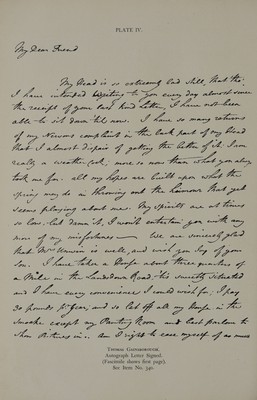 PLATE IV.
My Dear Friend
My Head is so extremely bad still, that tho'
I have intended writing to you every day almost since
the receipt of your last kind Letter, I have not been
able to sit down till now. I have so many returns
of my Nervous complaint in the back part of my Head
that I almost dispair of getting the better of it. I am
really a weather-cock; more so now than what you always
took me for. all my hopes are built upon what the
spring may do in throwing out the humour that yet
seems playing about me. My spirits are at times
so low. but damn it, I won't entertain you with any
more of my misfortunes — We are sincerely glad
that Mrs Unwin is well, and wish you Joy of your
Son. I have taken a House about three quarters of
a Mile in the Lansdown Road; 'tis sweetly situated
and I have every convenience I could wish for; I pay
30 pounds pr Year; and so let off all my House in the
Smoake except my Painting Room and best parlour to
Show Pictures in. Am I right to ease myself of as much
Thomas Gainsborough.
Autograph Letter Signed.
(Facsimile shows first page).
See Item No. 340.